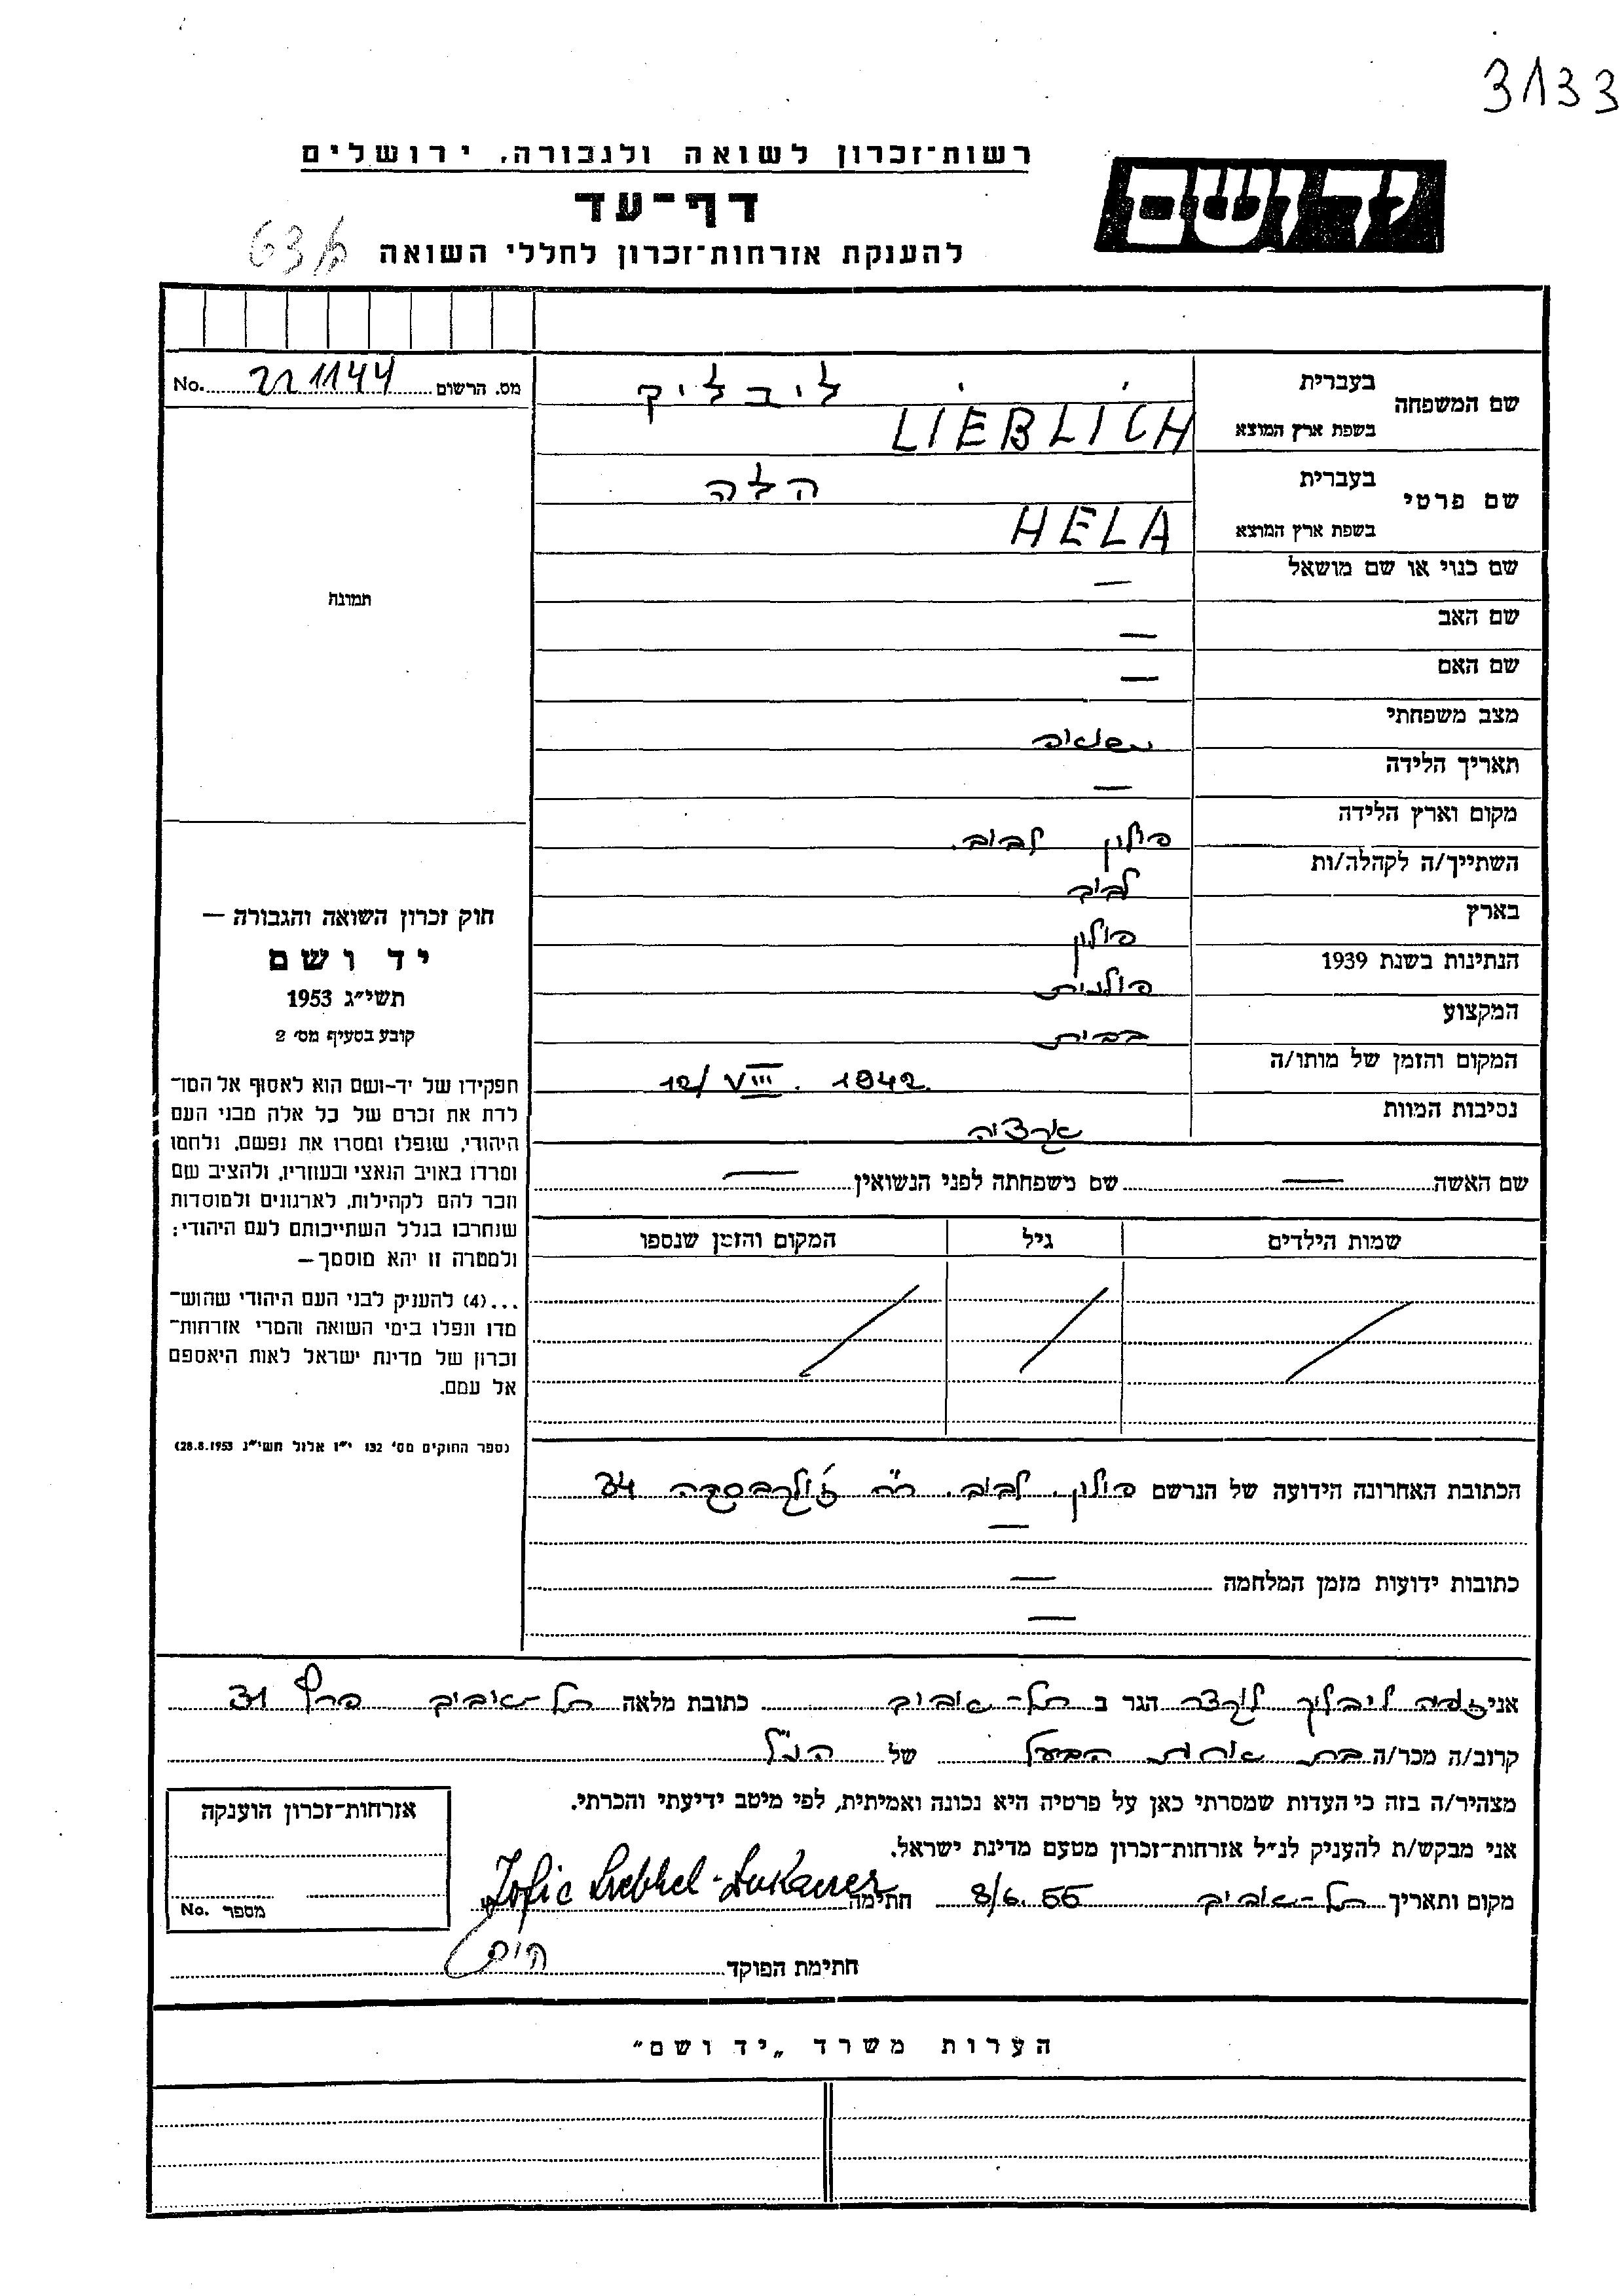 3133
רשות־זכרון לשואה ולגבורה, ירושלים
יד ושם
דף־עד
להענקת אזרחות־זכרון לחללי השואה
מס. הרשום 221144 No.
שם המשפחה
בעברית ליבליק
בשפת ארץ המוצא LIEBLICH
שם פרטי
בעברית הלה
בשפת ארץ המוצא HELA
שם כנוי או שם מושאל —
שם האב —
שם האם —
מצב משפחתי נשואה
תאריך הלידה —
מקום וארץ הלידה פולין לבוב.
השתייך/ה לקהלה/ות לבוב
בארץ פולין
הנתינות בשנת 1939 פולנית
המקצוע בבית
המקום והזמן של מותו/ה 12/VIII. 1942
נסיבות המוות
שם האשה — שם משפחתה לפני הנשואין —
שמות הילדים גיל המקום והזמן שנספו
תמונה
חוק זכרון השואה והגבורה —
יד ושם
תשי״ג 1953
קובע בסעיף מס׳ 2
תפקידו של יד-ושם הוא לאסוף אל המו־
לדת את זכרם של כל אלה מבני העם
היהודי, שנפלו ומסרו את נפשם, נלחמו
ומרדו באויב הנאצי ובעוזריו, ולהציב שם
וזכר להם לקהילות, לארגונים ולמוסדות
שנחרבו בגלל השתייכותם לעם היהודי;
ולמטרה זו יהא מוסמך —
...(4) להעניק לבני העם היהודי שהוש־
מדו ונפלו בימי השואה והמרי אזרחות־
זכרון של מדינת ישראל לאות היאספם
אל עמם.
(ספר החוקים מס׳ 132 י״ז אלול תשי״ג 28.8.1953)
הכתובת האחרונה הידועה של הנרשם פולין, לבוב, רח׳ 34
—
כתובות ידועות מזמן המלחמה —
—
אני ליבליך הגר ב תל-אביב כתובת מלאה תל-אביב 31
קרוב/ה מכר/ה בת אחות הבעל של הנ״ל
מצהיר/ה בזה כי העדות שמסרתי כאן על פרטיה היא נכונה ואמיתית, לפי מיטב ידיעתי והכרתי.
אני מבקש/ת להעניק לנ״ל אזרחות־זכרון מטעם מדינת ישראל.
מקום ותאריך תל-אביב 8/6.55 חתימה
חתימת הפוקד
אזרחות־זכרון הוענקה
מספר No.
הערות משרד „יד ושם״